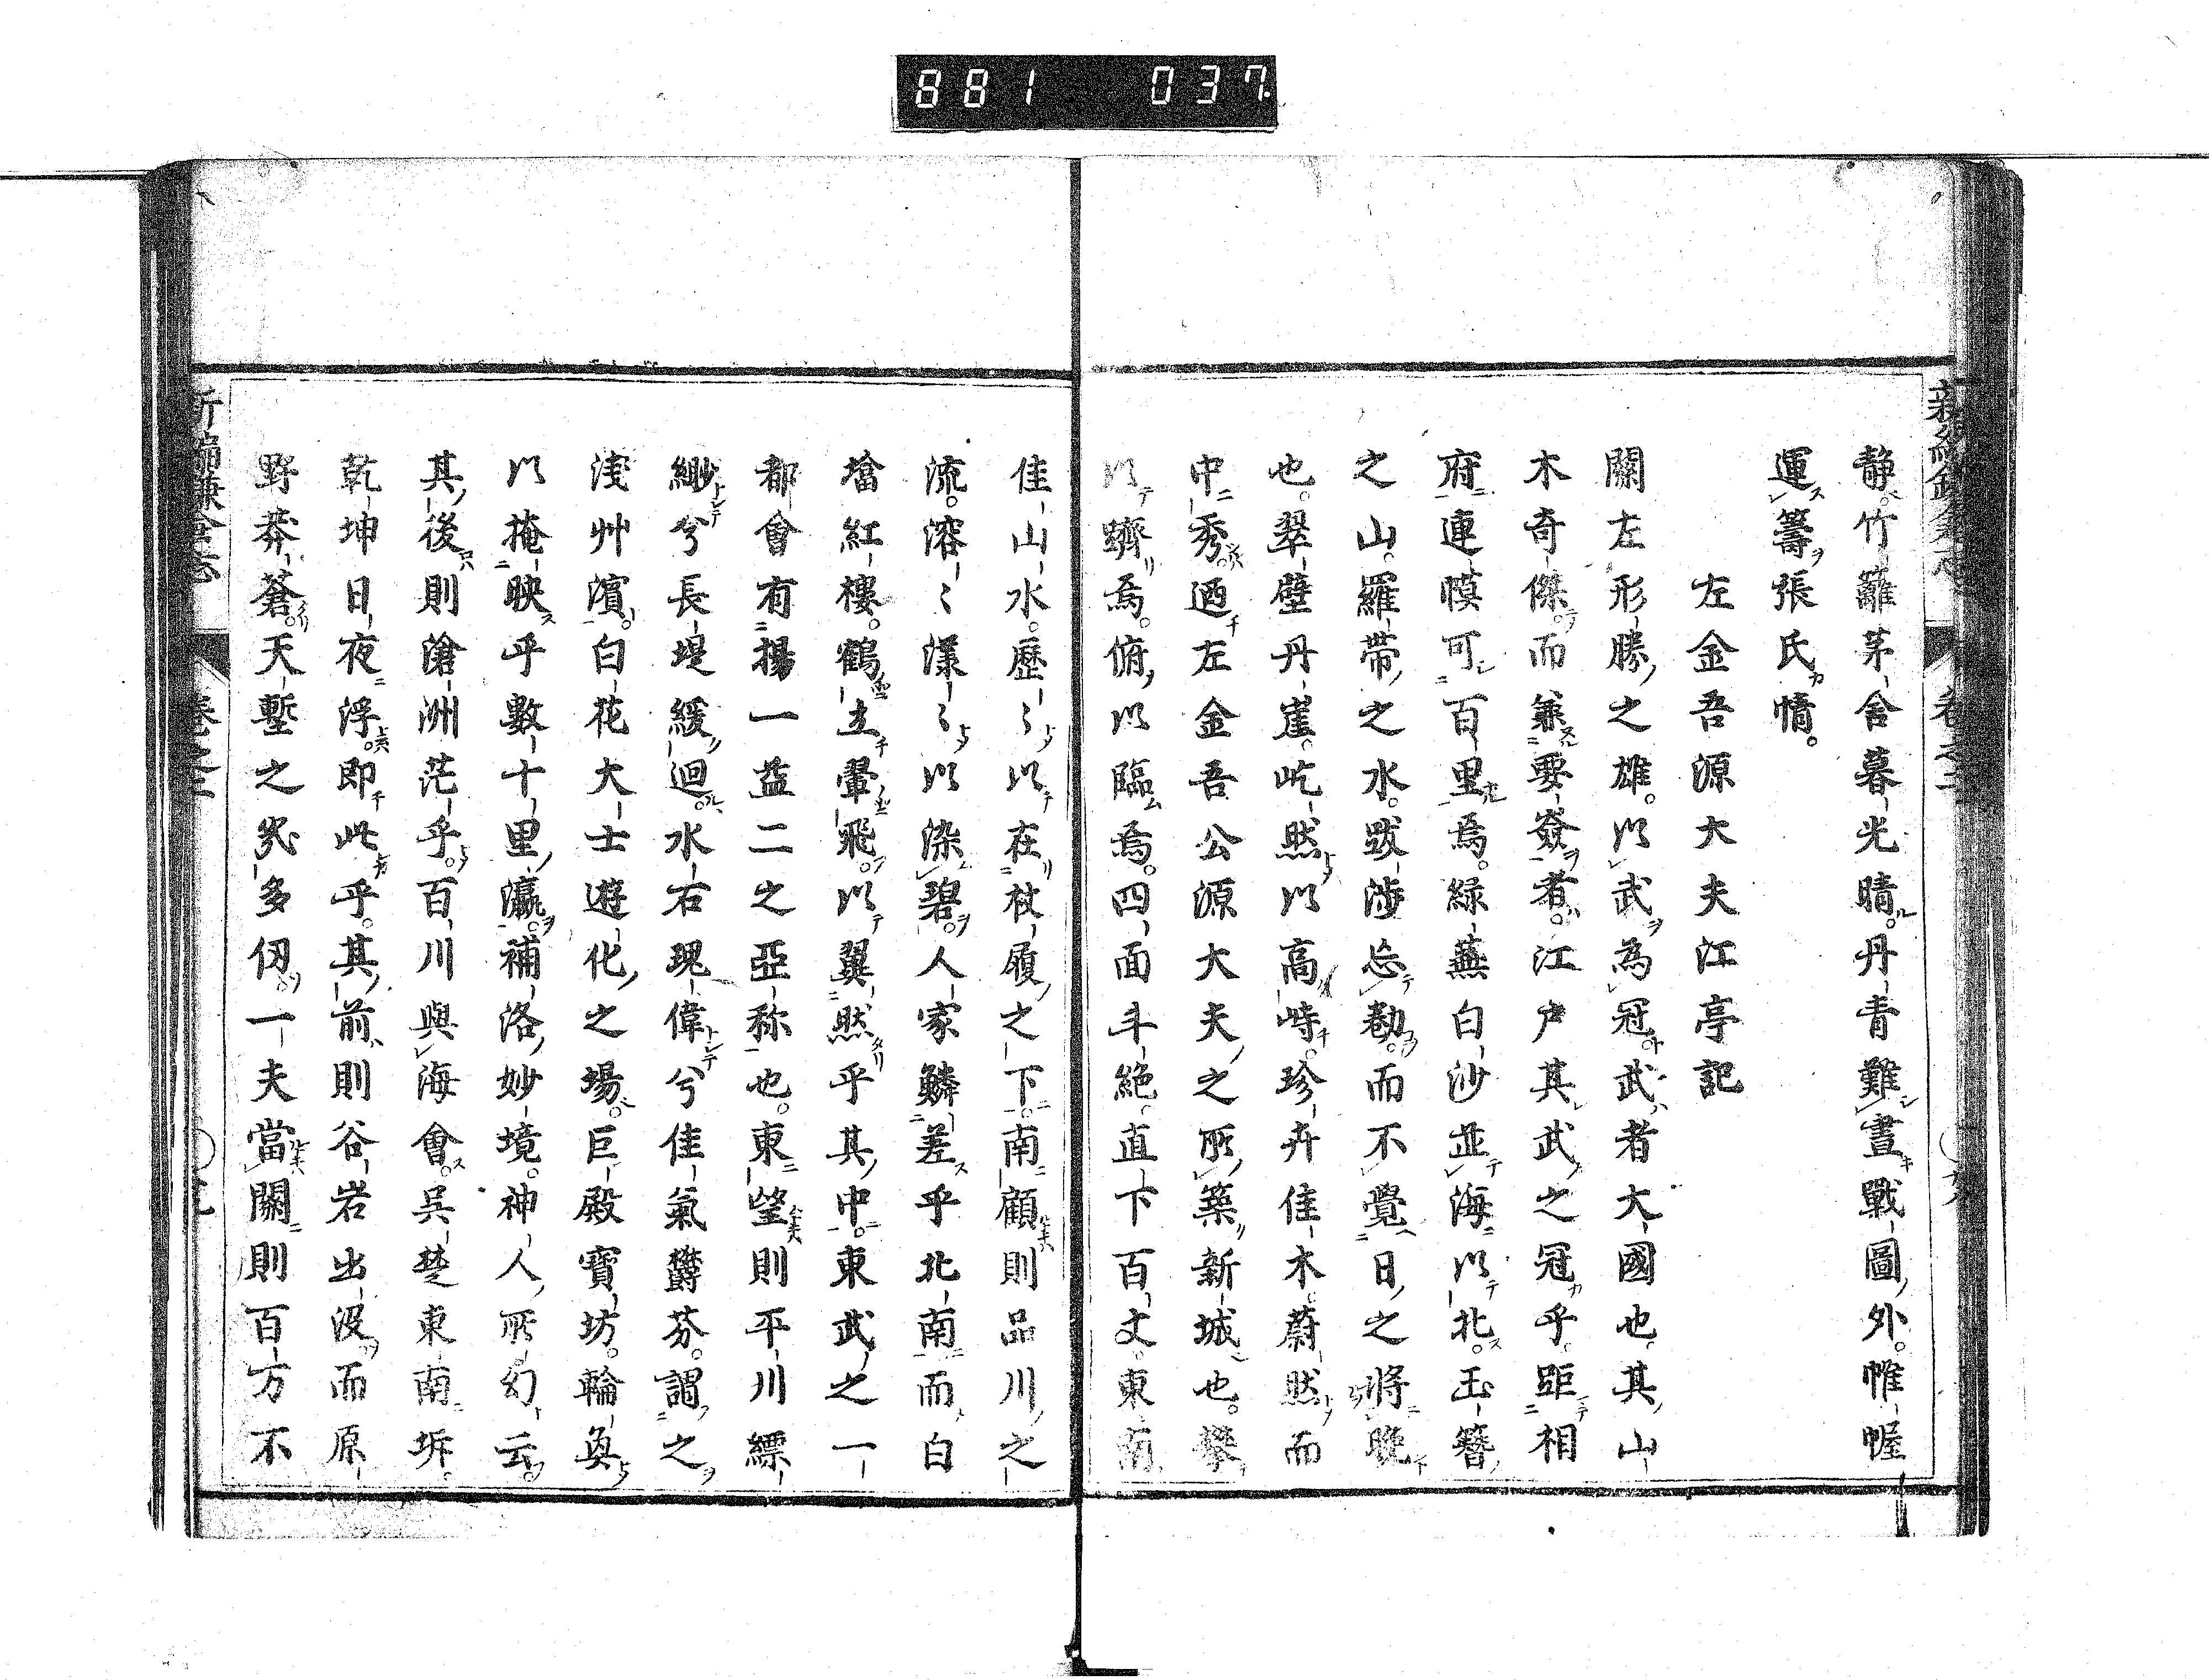 881 037
靜竹籬茅舍暮光晴丹青難畫戰圖外帷幄
運籌張氏情
左金吾源大夫江亭記
關左形勝之雄以武為冠武者大國也其山
木奇傑而兼要薮者江戸其武之冠乎距相
府連幙可百里焉緑蕪白沙並海以北玉簪
之山羅帶之水跋渉忘勌而不覺日之將晩
也翠壁丹崖屹然以高峙珍卉佳木蔚然而
中秀迺左金吾公源大夫之所築新城也攀
以躋焉俯以臨焉四面斗絶直下百丈東南
佳山水歴〻以在杖履之下南顧則品川之
流溶〻漾〻以染碧人家鱗差乎北南而白
墻紅樓鶴立翬飛以翼然乎其中東武之一
都會有揚一益二之亞称也東望則平川縹
緲兮長堤緩迴水石瑰偉兮佳氣欝芬謂之
淺艸濱白花大士遊化之場巨殿寶坊輪奐
以掩映乎數十里瀛補洛妙境神人所幻云
其後則滄洲茫乎百川與海會呉楚東南坼
乾坤日夜浮即此乎其前則谷岩出没而原
野莽蒼天塹之幾多仭一夫當關則百万不
新編鎌倉志 卷之二